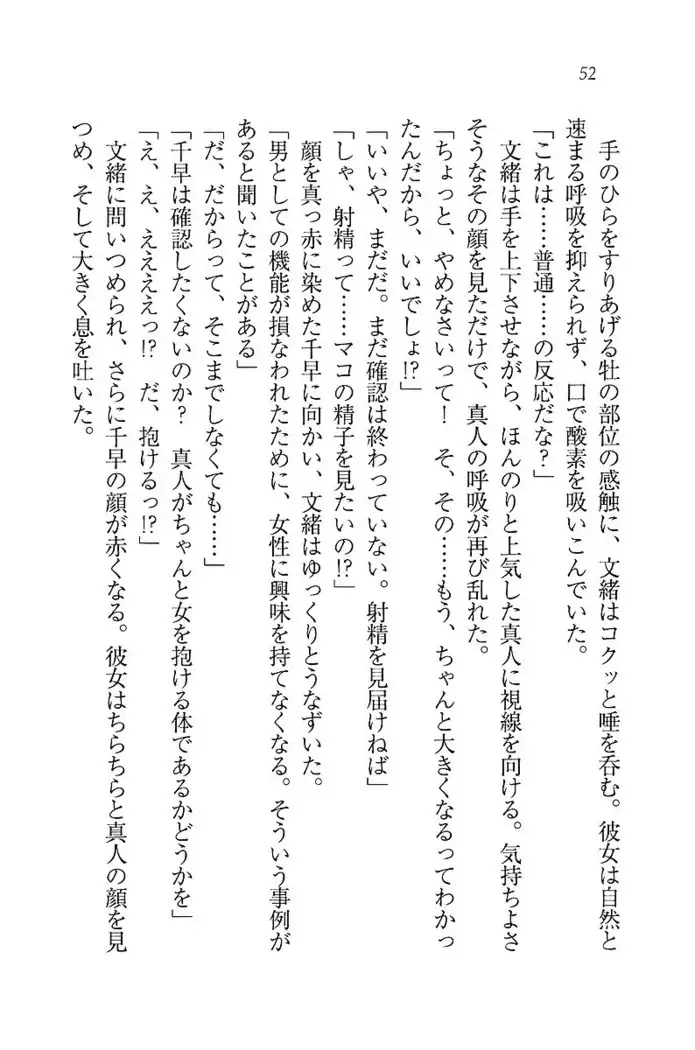 52
手のひらをすりあげる牡の部位の感触に、文緒はコクッと唾を呑む。彼女は自然と
速まる呼吸を抑えられず、口で酸素を吸いこんでいた。
「これは……普通……の反応だな？」
文緒は手を上下させながら、ほんのりと上気した真人に視線を向ける。気持ちよさ
そうなその顔を見ただけで、真人の呼吸が再び乱れた。
「ちょっと、やめなさいって！　そ、その……もう、ちゃんと大きくなるってわかっ
たんだから、いいでしょ!?」
「いいや、まだだ。まだ確認は終わっていない。射精を見届けねば」
「しゃ、射精って……マコの精子を見たいの!?」
顔を真っ赤に染めた千早に向かい、文緒はゆっくりとうなずいた。
「男としての機能が損なわれたために、女性に興味を持てなくなる。そういう事例が
あると聞いたことがある」
「だ、だからって、そこまでしなくても……」
「千早は確認したくないのか？　真人がちゃんと女を抱ける体であるかどうかを」
「え、え、ええええっ!?　だ、抱けるっ!?」
文緒に問いつめられ、さらに千早の顔が赤くなる。彼女はちらちらと真人の顔を見
つめ、そして大きく息を吐いた。